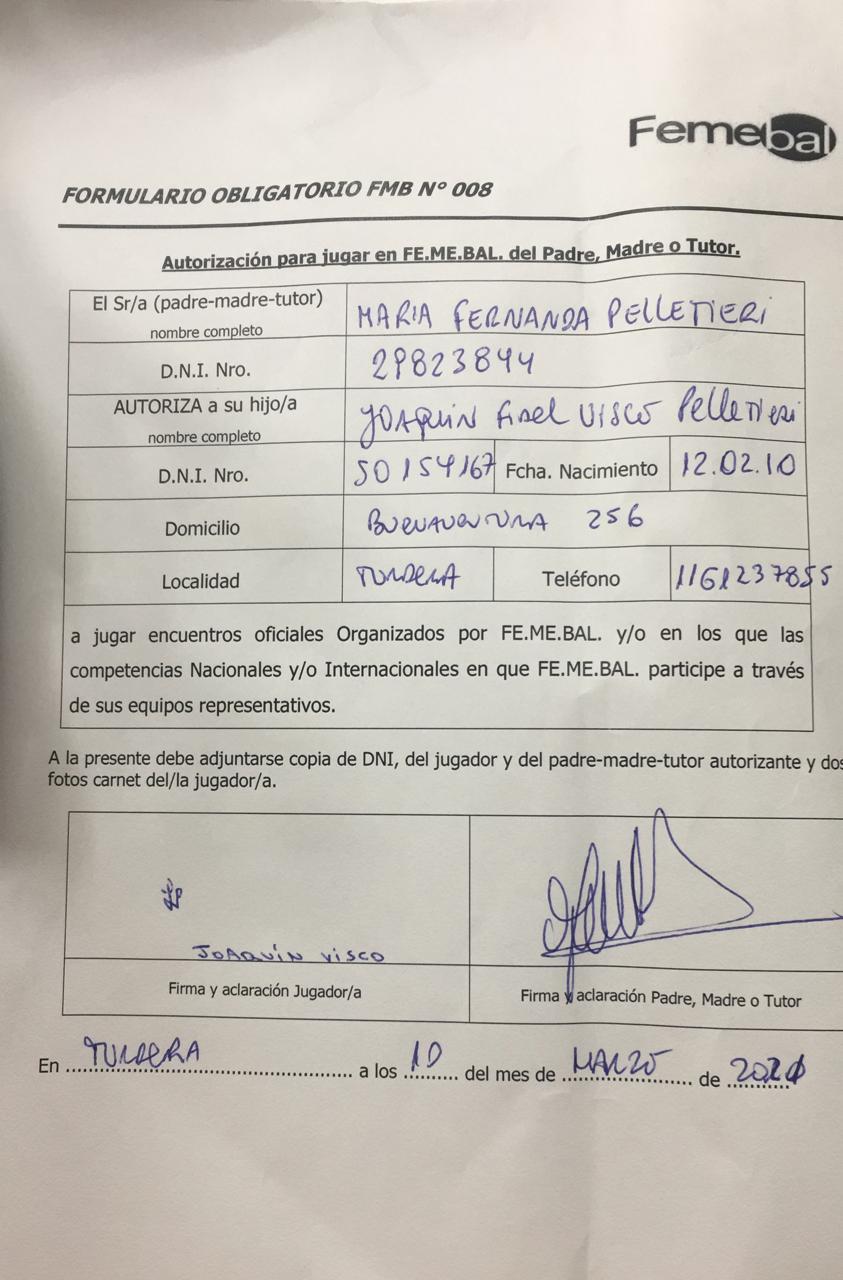 Femebal
FORMULARIO OBLIGATORIO FMB Nº 008
Autorización para jugar en FE.ME.BAL. del Padre, Madre o Tutor.
El Sr/a (padre-madre-tutor)
nombre completo
MARIA FERNANDA PELLETIERI
D.N.I. Nro.
29823844
AUTORIZA a su hijo/a
nombre completo
JOAQUIN FIDEL VISCO PELLETIERI
D.N.I. Nro.
50154167
Fcha. Nacimiento
12.02.10
Domicilio
BUENAVENTURA 256
Localidad
TURDERA
Teléfono
1161237855
a jugar encuentros oficiales Organizados por FE.ME.BAL. y/o en los que las
competencias Nacionales y/o Internacionales en que FE.ME.BAL. participe a través
de sus equipos representativos.
A la presente debe adjuntarse copia de DNI, del jugador y del padre-madre-tutor autorizante y dos
fotos carnet del/la jugador/a.
JOAQUÍN VISCO
Firma y aclaración Jugador/a
Firma y aclaración Padre, Madre o Tutor
En TURDERA a los 10 del mes de MARZO de